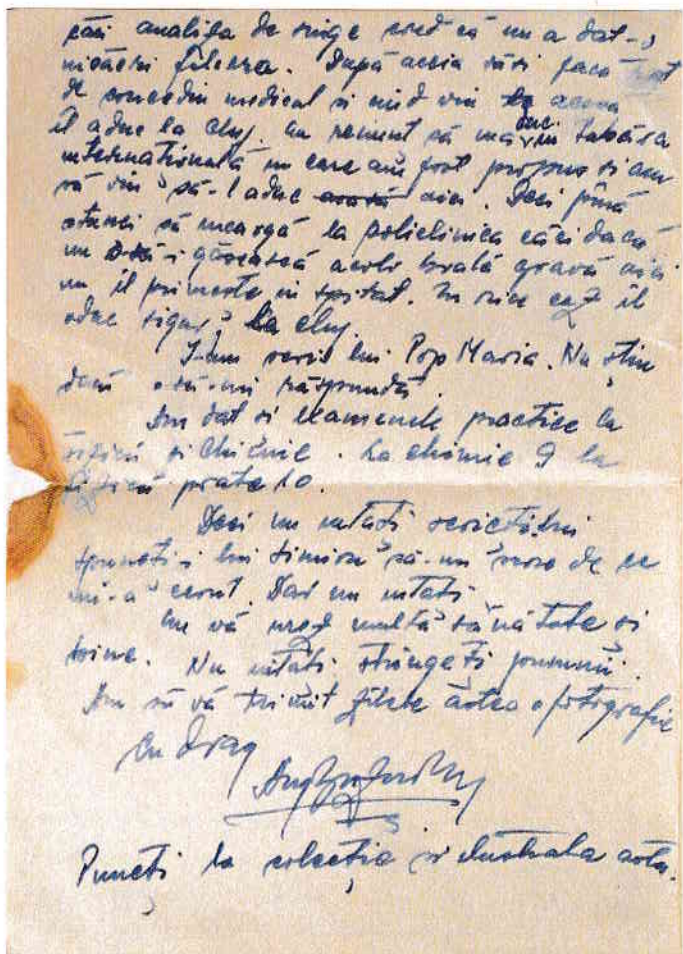 căci analiza de singe cred că nu a dat-o
nicăeri fiindcă. După aceia să-și facă rost
de concediu medical și cînd vin acasă
îl aduc la Cluj. Eu renunț să mă duc în tabăra
internațională în care am fost propus și am
să vin să-l aduc aici. Deci pînă
atunci să meargă la policlinica căci dacă
nu o să-i găsească acolo boală gravă aici
nu îl primește în spital. In orice caz îl
aduc sigur la Cluj.
I-am scris lui Pop Maria. Nu știu
dacă o să-mi răspundă.
Am dat și examenele practice la
fizică și chimie. La chimie 9 la
fizică poate 10.
Deci nu uitați scrieți-mi
spuneți-i lui să-mi scrie de ce
mi-a cerut. Dar nu uitați
Eu vă urez multă sănătate și
bine. Nu uitați strîngeți
Am să vă trimit zilele astea o fotografie
Cu drag
Puneți la colecție și ilustrata asta.